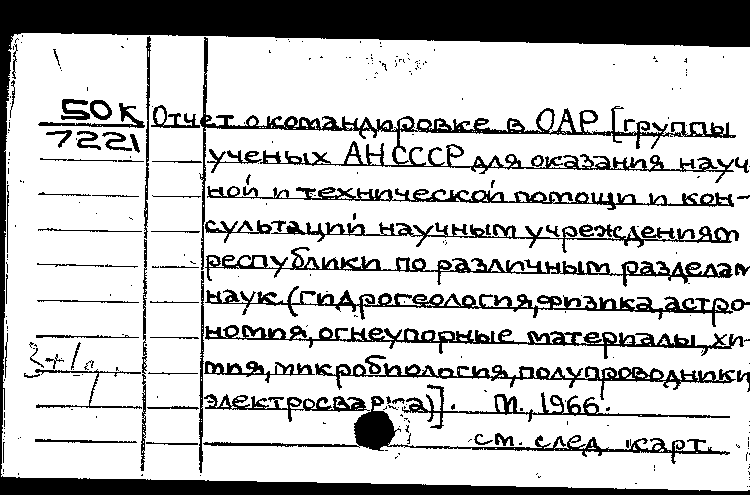 50К
7221
Отчет о командировке в ОАР [группы
ученых АН СССР для оказания науч
ной и технической помощи и кон-
сультаций научным учреждениям
республики по различным разделам
наук (гидрогеология, физика, астро-
номия, огнеупорные материалы, хи-
мия, микробиология, полупроводники,
электросварка)]. М., 1966.
см. след карт.